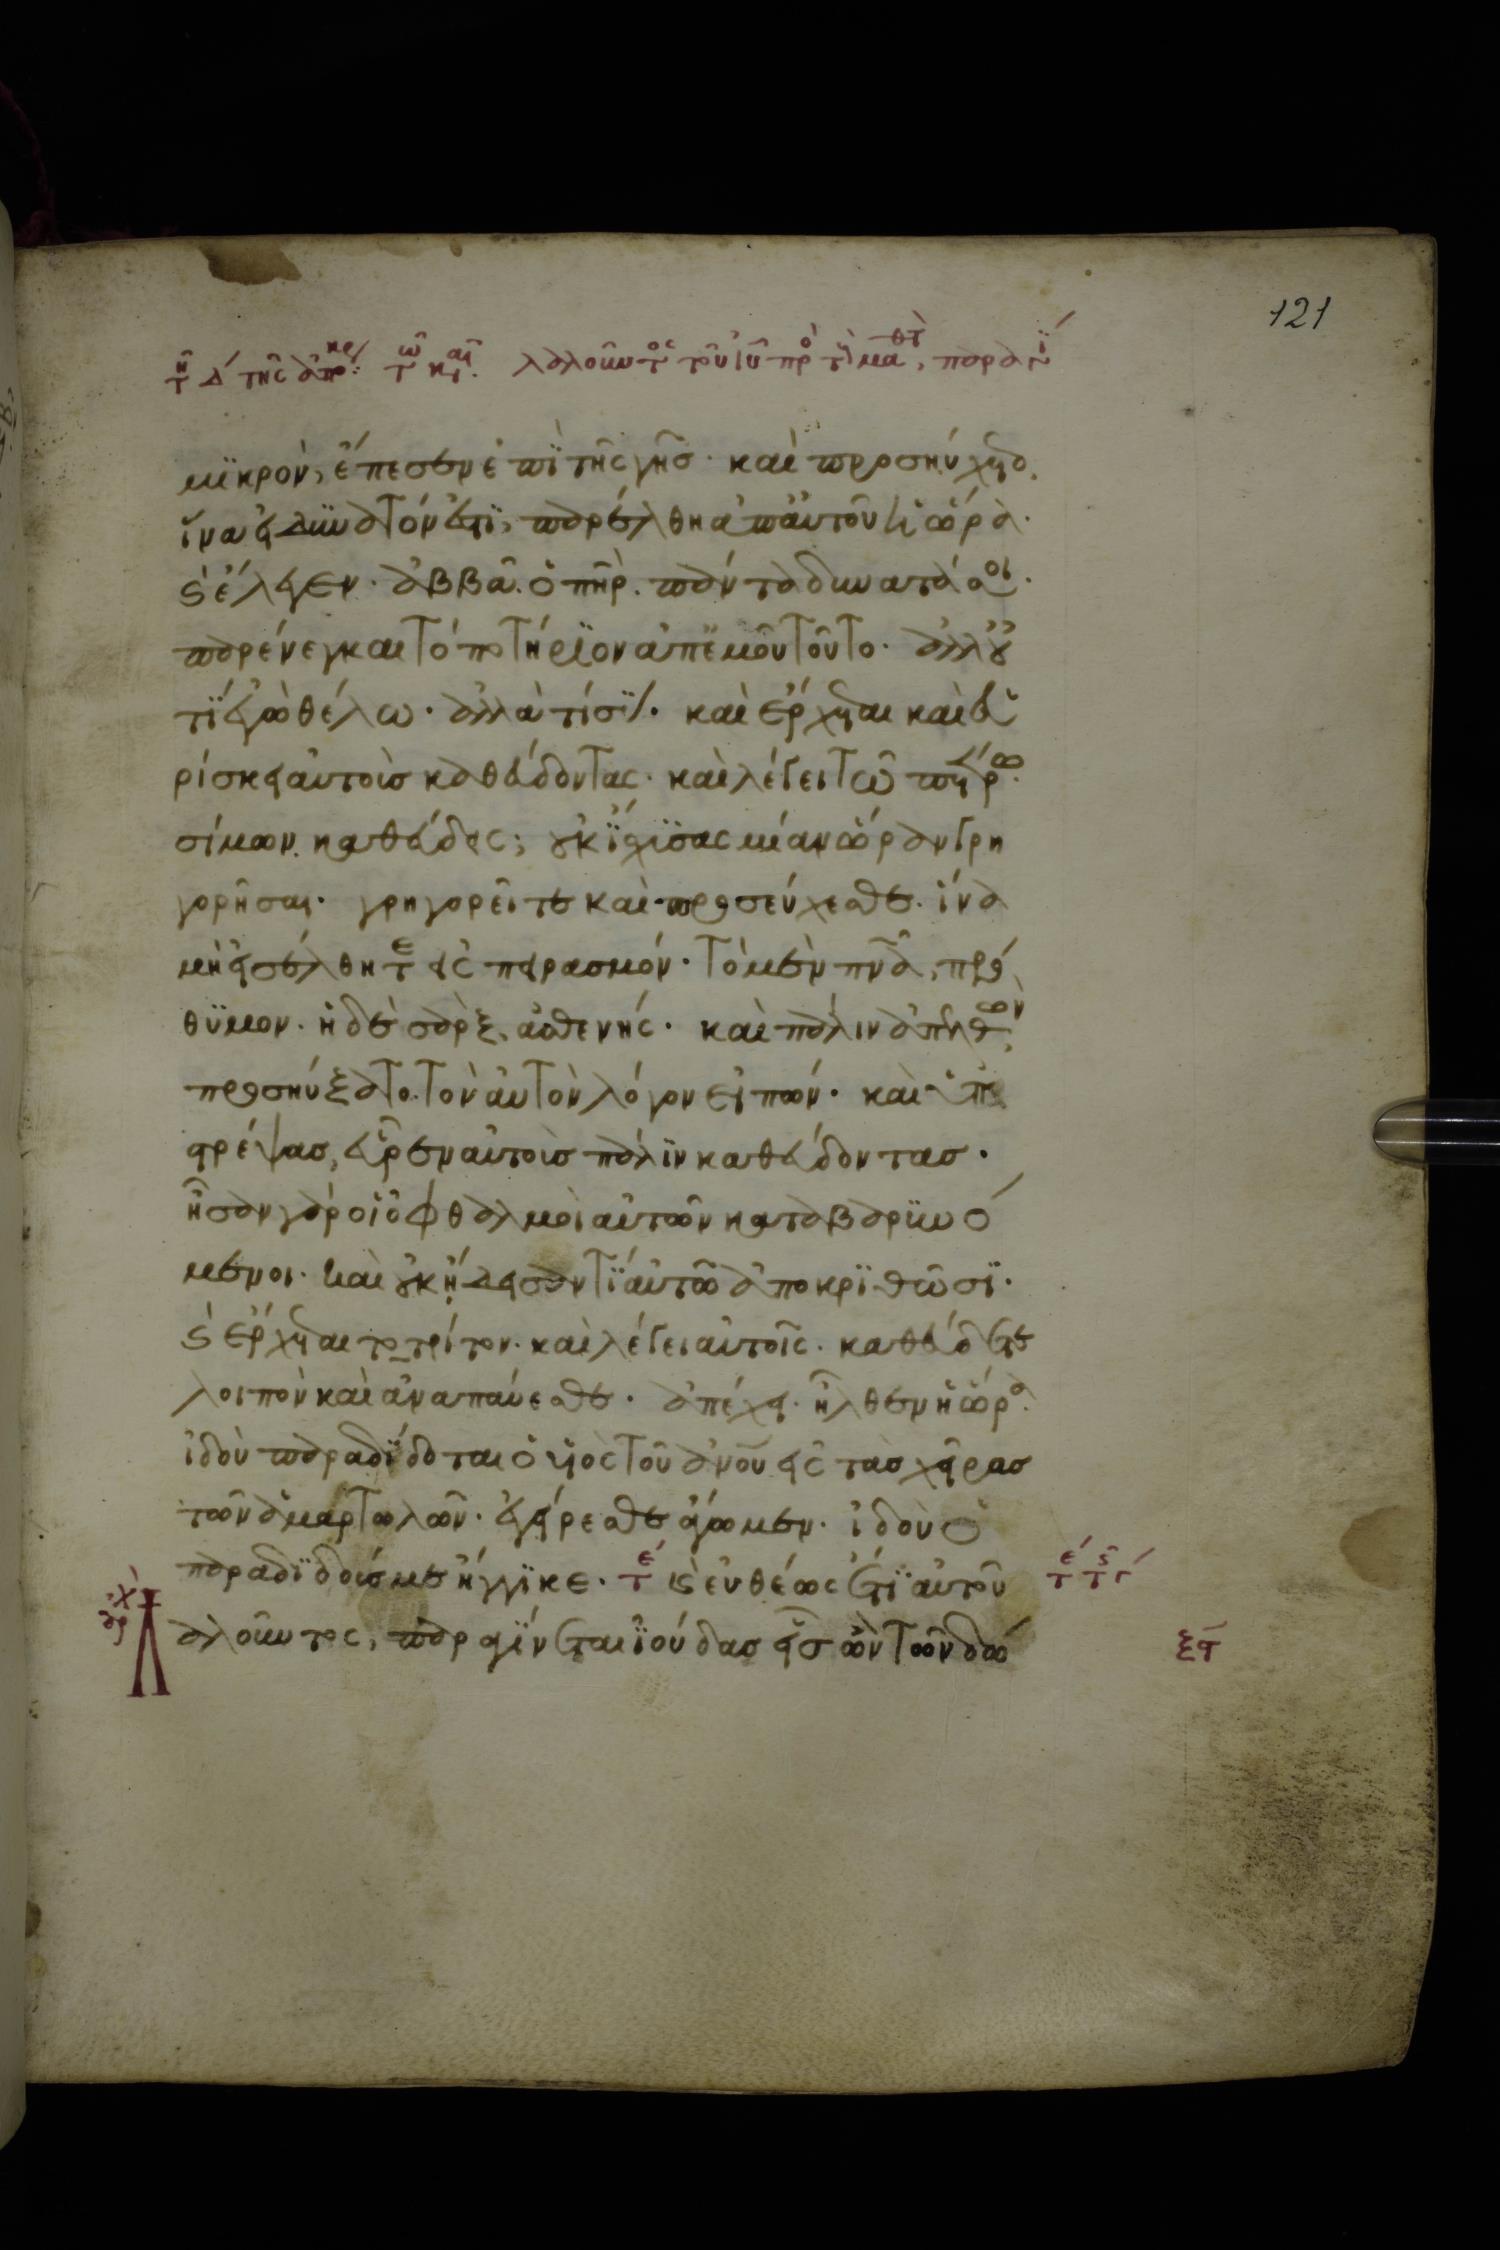 121
τῆ δ τῆς ἀπόκρε τῶ καιρῶ λαλοῦντος τοῦ ιυ πρὸς τοὺς μαθητὰς, παραγί
μϊκρὸν, ἔπεσεν ἐπὶ τῆς γῆς· καὶ προσηύχετο,
ἵνα εἰ δυνατόν ἐστϊ, παρέλθη ἀπ' αὐτοῦ ἡ ὥρα·
καὶ ἔλεγεν· ἀββᾶ ὁ πηρ· πάντα δυνατά σοι·
παρένεγκαι τὸ ποτήρϊον ἀπ' ἐμοῦ τοῦτο· ἀλλ' οὐ
τί ἐγὼ θέλω· ἀλλὰ τί σύ· καὶ ἔρχεται καὶ εὑ
ρίσκει αὐτοὺς καθεύδοντας· καὶ λέγει τῶ πέτρω·
σίμων καθεύδεις; οὐκ ἰσχύσας μίαν ὥραν γρη
γορῆσαι· γρηγορεῖτε καὶ προσεύχεσθε· ἵνα
μὴ εἰσέλθητε εἰς πειρασμόν· τὸ μὲν πνα, πρό
θϋμον· ἡ δὲ σὰρξ, ἀσθενής· καὶ πάλιν ἀπελθὼν,
προσηύξατο τὸν αὐτὸν λόγον εἰπών· καὶ ὑπο
στρέψας, εὗρεν αὐτοὺς πάλϊν καθεύδοντας·
ἦσαν γὰρ οἱ ὀφθαλμοὶ αὐτῶν καταβαρϋνό
μενοι· καὶ οὐκ ἤδεισαν τί αὐτῶ ἀποκρϊθῶσϊ·
καὶ ἔρχεται τὸ τρίτον· καὶ λέγει αὐτοῖς· καθεύδετε
λοιπὸν καὶ ἀναπαύεσθε· ἀπέχει· ἦλθεν ἡ ὥρα·
ἰδοὺ παραδίδοται ὁ υἱὸς τοῦ ἀνου εἰς τὰς χεῖρας
τῶν ἁμαρτωλῶν· ἐγείρεσθε ἄγωμεν· ἰδοὺ ὁ
παραδϊδούς με ἤγγϊκε· τε καὶ εὐθέως ἔτϊ αὐτοῦ
λαλοῦντος, παραγίνεται ἰούδας εἷς ὢν τῶν δώ
ἀρχ
ξε